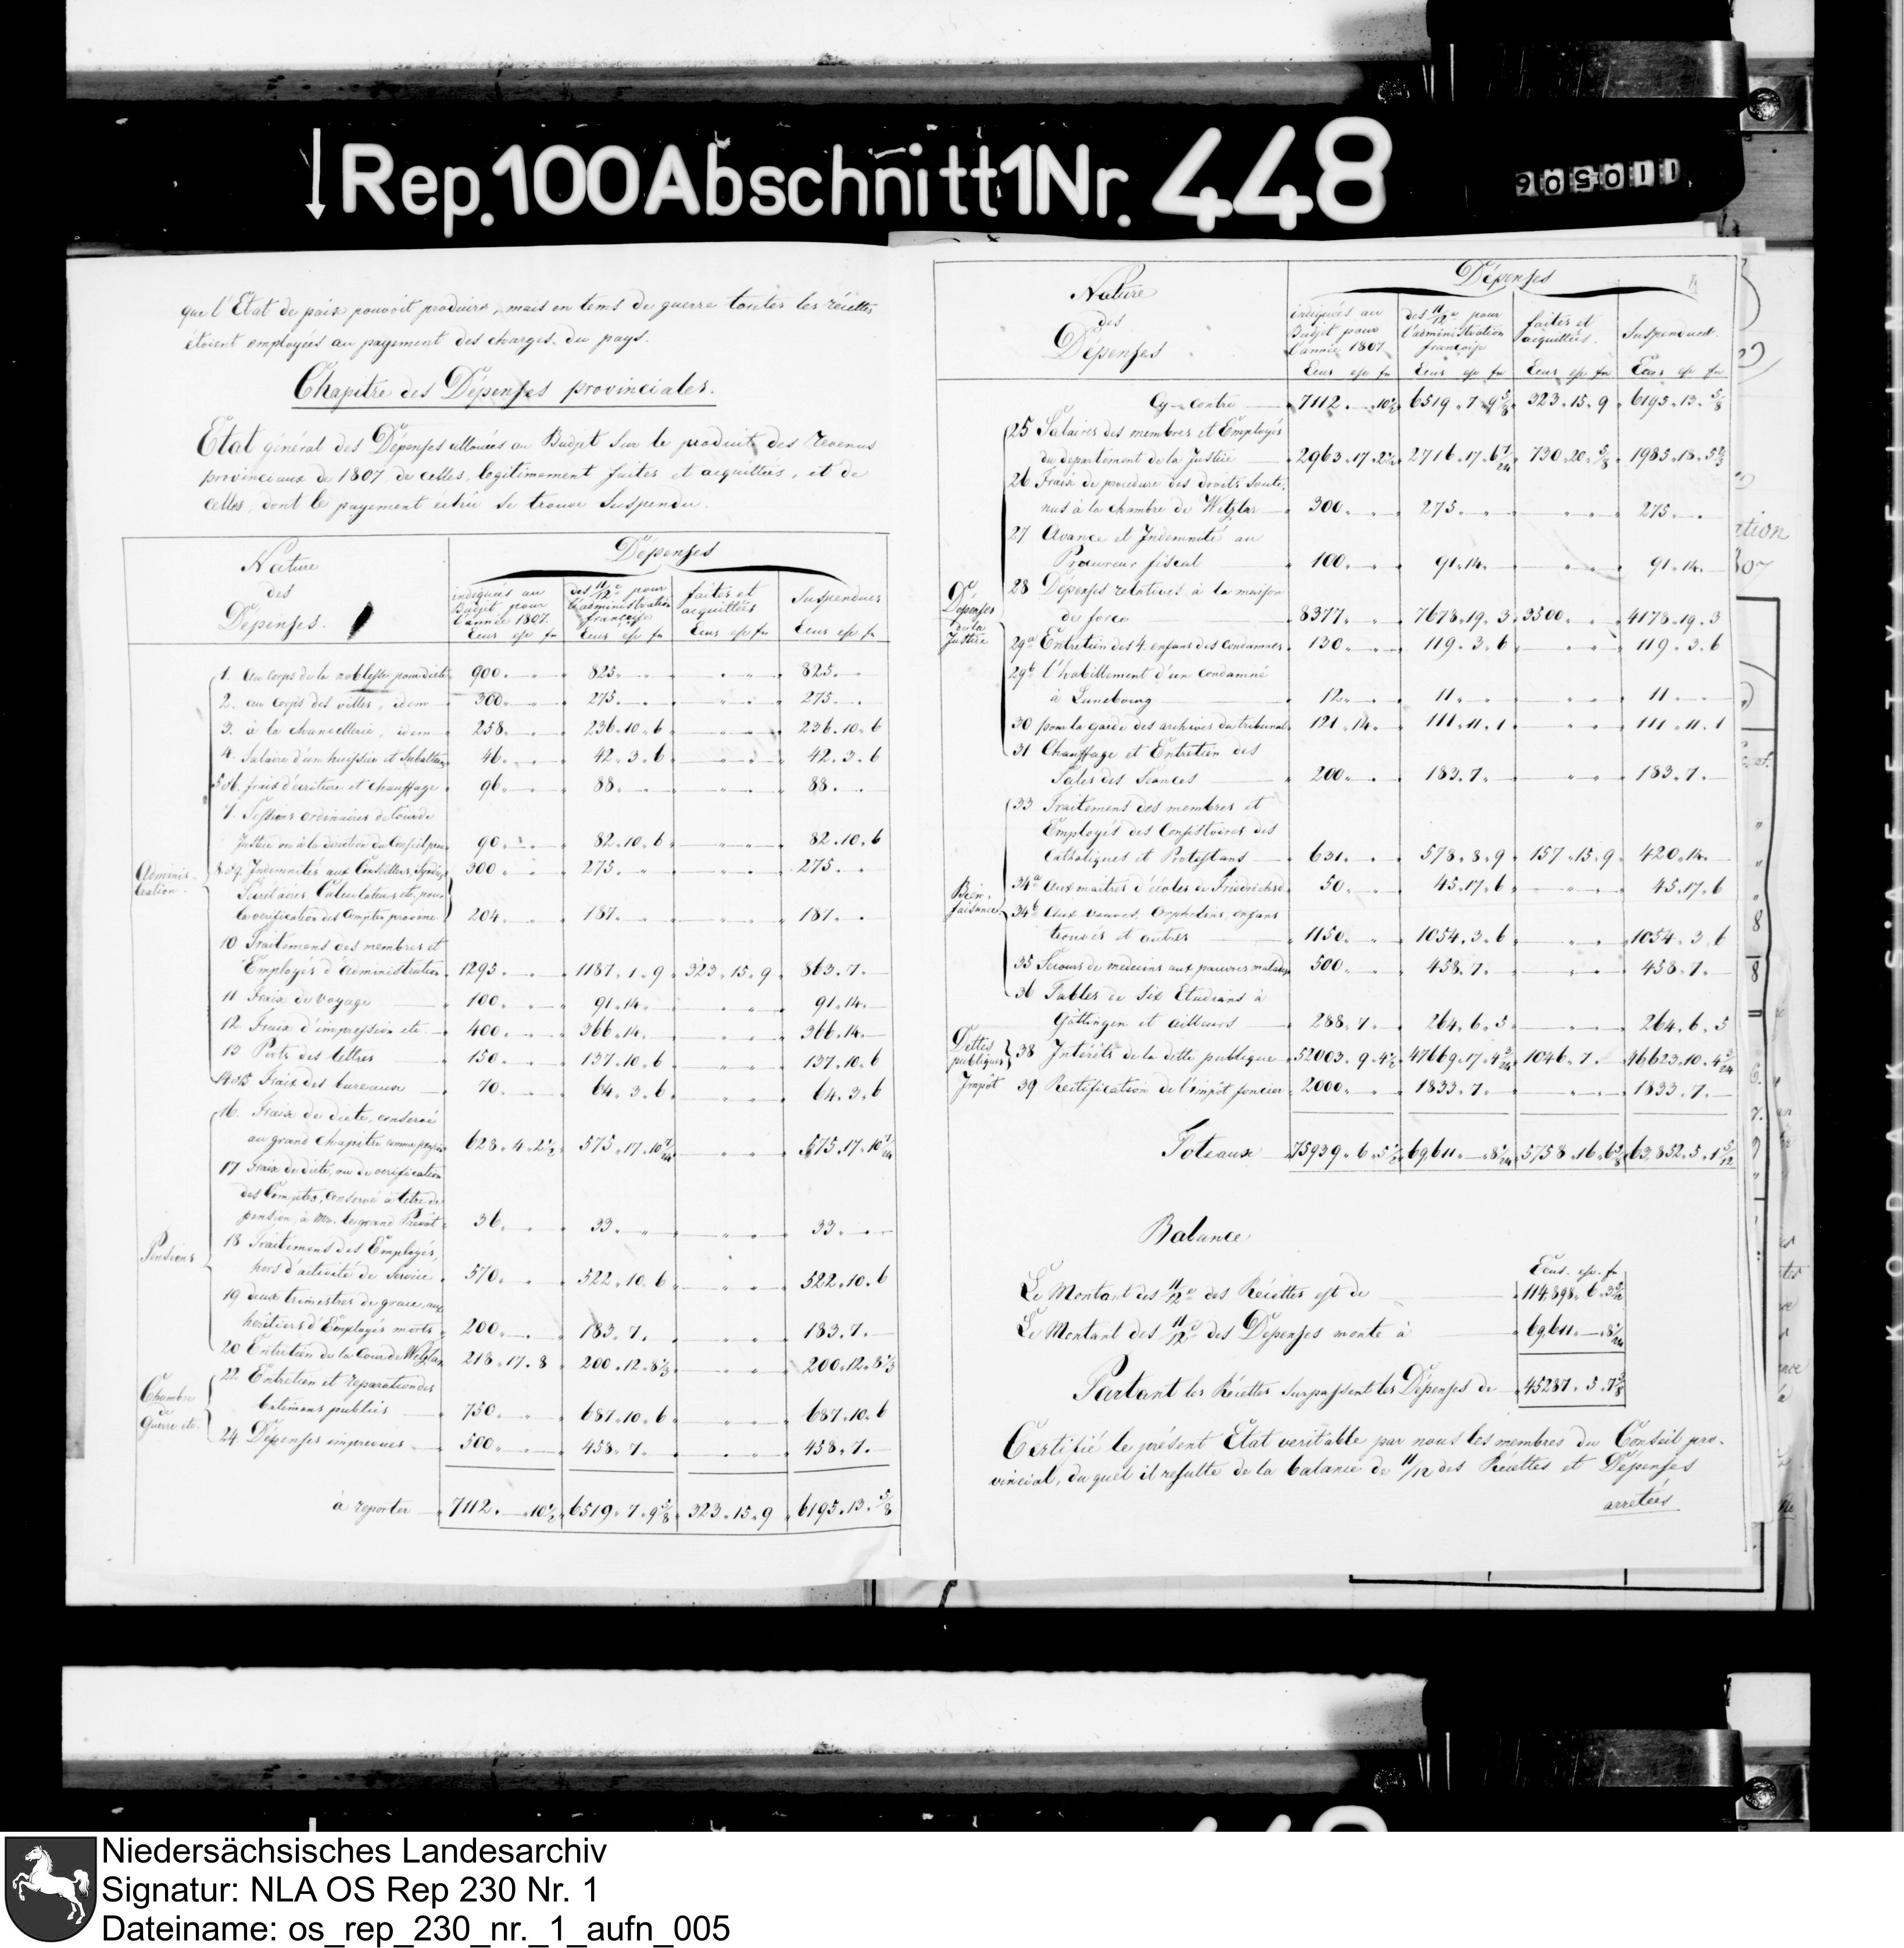 Rep. 100 Abschnitt 1 Nr. 448
que l'Etat de paix pouvoit produire, mais en tems de guerre toutes les récettes
étoient employées au payement des charges du pays.
Chapitre des Dépenses provinciales.
Etat général des Dépenses allouées au Budjet sur le produit des revenus
provinciaux de 1807 de celles, legitimement faites et acquittées, et de
celles, dont le payement se trouve suspendu.
Nature des Dépenses.
Dépenses
indiquées au Budjet pour l'année 1807.
des 11/12e pour l'administration françoise
faites et acquittées
Suspendues
Ecus esc fn Ecus esc fn Ecus esc fn Ecus esc fn
Adminis-tration.
1. Au corps de la noblesse pour diete 900. 825. 825.
2. au corps des villes, idem 300. 275. 275.
3. à la chancellerie, idem 258. 236. 10. 6 236. 10. 6
4. Salaire d'un huissier et Subalterne 46. 42. 3. 6 42. 3. 6
5 & 6. frais d'ecriture et chauffage 96. 88. 88.
7. Sessions ordinaires de
Justice ou à la direction du Conseil prov. 90. 82. 10. 6 82. 10. 6
8 & 9. Indemnités aux Conseillers, Syndic, 300 275. 275.
Secrétaires, Calculateurs etc. pour
la verification des Comptes provinc. 204. 187. 187.
10 Traitemens des membres et
Employés d'administration 1295. 1187. 1. 9 323. 15. 9 863. 7.
11 Frais de voyage 100. 91. 14. 91. 14.
12. Frais d'impression etc. 400. 366. 14. 366. 14.
13 Ports des lettres 150. 137. 10. 6 137. 10. 6
14 & 15 Frais des bureaux 70. 64. 3. 6 64. 3. 6
Pensions
16. Frais de diete, conservé
au grand Chapitre comme pension 628. 4. 2 1/2 575. 17. 10 7/24 575. 17. 10 7/24
17 Frais de diete, ou de verification
des Comptes, conservé à titre de
pension, à Mr. le grand Prevôt 36. 33. 33.
18 Traitemens des Employés,
hors d'activité de Service 570. 522. 10. 6 522. 10. 6
19 deux trimestres de grace, aux
heritiers d'Employés morts 200. 183. 7. 183. 7.
20 Entretien de la Cour de Wetzlar 218. 17. 8 200. 12. 8 1/3 200. 12. 8 1/3
Chambre de Guerre etc.
22 Entretien et reparation des
batimens publics 750. 687. 10. 6 687. 10. 6
24 Dépenses imprevues 500. 458. 7. 458. 7.
à reporter 7112. — 10 1/2 6519. 7. 9 5/8 323. 15. 9 6195. 13. 5/8
Nature des Dépenses
Dépenses
indiquées au Budjet pour l'année 1807
des 11/12e pour l'administration françoise
faites et acquittées.
Suspendues.
Ecus esc fn Ecus esc fn Ecus esc fn Ecus esc fn
Cy-contre 7112. — 10 1/2 6519. 7. 9 5/8 323. 15. 9 6195. 13. 5/8
Dépenses de la Justice
25 Salaires des membres et Employés
du departement de la Justice 2963. 17. 2 1/2 2716. 17. 6 7/24 730. 20. 5/8 1985. 18. 5 2/3
26 Frais de procedure des droits soute-
nus à la chambre de Wetzlar 300. 275. 275.
27 Avance et Indemnité au
Procureur fiscal 100. 91. 14. 91. 14.
28 Dépenses relatives à la maison
de force 8377. 7678. 19. 3 3500. 4178. 19. 3
29a Entretien des 4. enfans des condamnés 130. 119. 3. 6 119. 3. 6
29b l'habillement d'un condamné
à Lunebourg 12. 11. 11.
30 pour la garde des archives du tribunal 121. 14. 111. 11. 1 111. 11. 1
31 Chauffage et Entretien des
Sales des Séances 200. 183. 7. 183. 7.
Bien-faisance
33 Traitemens des membres et
Employés des Consistoires des
Catholiques et Protestans 631. 578. 8. 9 157. 15. 9 420. 14.
34a Aux maitres d'écoles de 50. 45. 17. 6 45. 17. 6
34b Aux veuves, Orphelins, enfans
trouvés et autres 1150. 1054. 3. 6 1054. 3. 6
35 Secours de medecins aux pauvres malades 500. 458. 7. 458. 7.
36 Tables de Six Etudians à
Göttingen et ailleurs 288. 7. 264. 6. 5 264. 6. 5
Dettes publiques
38 Intérêts de la dette publique 52003. 9. 4 1/2 47669. 17. 4 3/24 1046. 7. 46623. 10. 4 3/24
Impôt 39 Rectification de l'impôt foncier 2000. 1833. 7. 1833. 7.
Toteaux 75939. 6. 5 1/2 69,611. — 8 1/24 5758. 16. 6 5/8 63,852. 5. 1 5/12
Balance
Ecus. esc. fn
Le Montant des 11/12e des Récettes est de 114,898. 6. 3 5/12
Le Montant des 11/12e des Dépenses monte à 69,611. — 8 1/24
Partant les Récettes surpassent les Dépenses de 45287. 5. 7 3/8
Certifié le présent Etat veritable par nous les membres du Conseil pro-
vincial, du quel il resulte de la balance de 11/12 des Récettes et Dépenses
arretées
KODAK SAFETY
Niedersächsisches Landesarchiv
Signatur: NLA OS Rep 230 Nr. 1
Dateiname: os_rep_230_nr._1_aufn_005